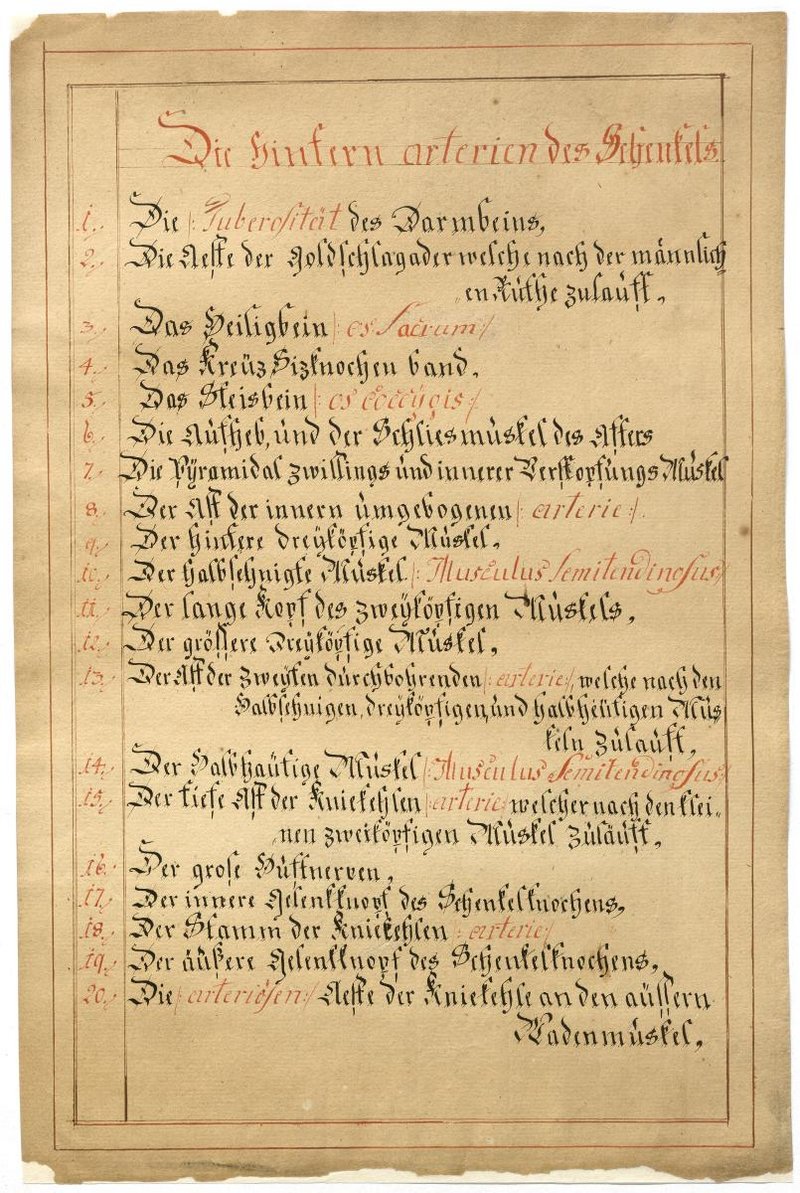 Die hintern arterien des Schenkels
1. Die /: Tuberosität des Darmbeins,
2. Die Aeste der Goldschlagader welche nach der männlich
en Ruthe zulauft,
3. Das Heiligbein /: os Sacrum :/
4. Das Kreüz Sizknochen band,
5. Das Steisbein /: os coccygis :/
6. Die Aufheb, und der Schliesmuskel des Afters
7. Die Pyramidal zwillings und innerer Verstopfungs Muskel
8. Der Ast der innern umgebogenen /: arterie :/.
9. Der hintere dreyköpfige Muskel,
10. Der halbsehnigte Muskel /: Musculus Semitendinosus :/
11. Der lange Kopf des zweyköpfigen Muskels,
12. Der grössere Dreyköpfige Muskel,
13. Der Ast der zweyten durchbohrenden /: arterie :/, welche nach den
halbsehnigen, dreyköpfigen, und halbheutigen Mus
keln zulauft,
14. Der halbhäutige Muskel /: Musculus Semitendinosus :/
15. Der tiefe Ast der Kniekehlen /: arterie :/ welcher nach den klei„
nen zweiköpfigen Muskel zuläuft,
16. Der grose Hüftnerven,
17. Der innere Gelenkknopf des Schenkelknochens,
18. Der Stamm der Kniekehlen /: arterie :/
19. Der äußere Gelenkknopf des Schenkelknochens,
20. Die /: arteriösen :/ Aeste der Kniekehle an den äussern
Wadenmuskel,